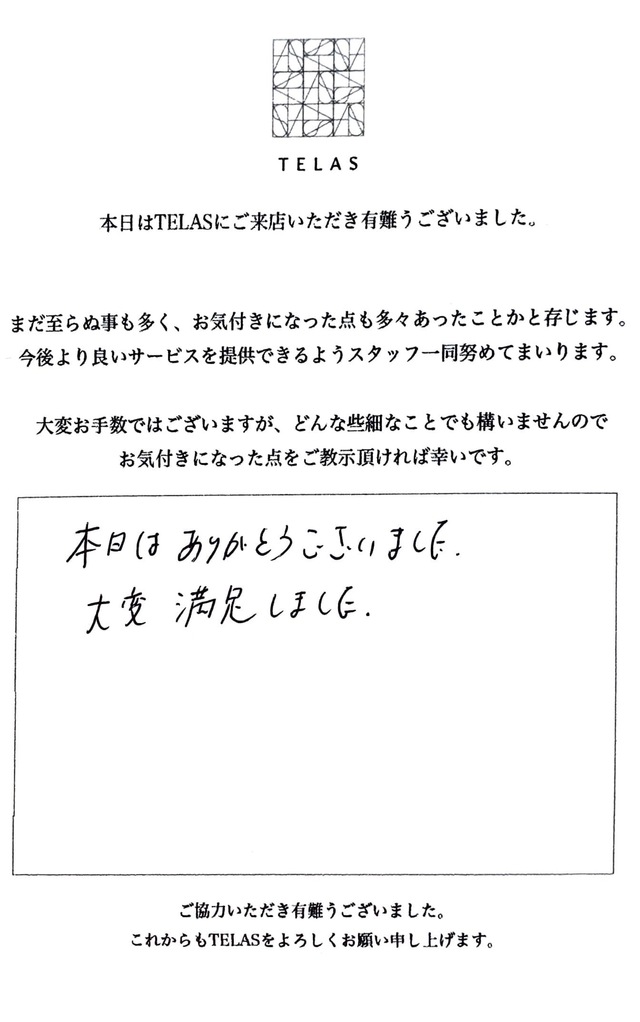 TELAS
本日はTELASにご来店いただき有難うございました。
まだ至らぬ事も多く、お気付きになった点も多々あったことかと存じます。
今後より良いサービスを提供できるようスタッフ一同努めてまいります。
大変お手数ではございますが、どんな些細なことでも構いませんので
お気付きになった点をご教示頂ければ幸いです。
本日は ありがとうございました.
大変 満足しました.
ご協力いただき有難うございました。
これからもTELASをよろしくお願い申し上げます。